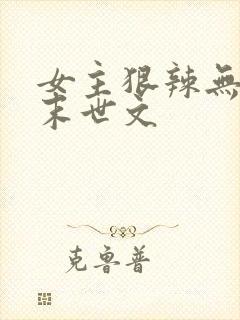 女主狠辣無
末世文
克魯普